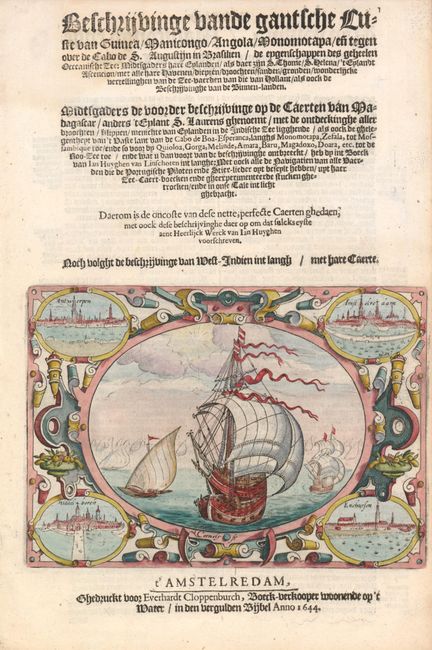 Beschrijvinge vande gantsche Cu-
ste van Guinea/Manicongo/Angola/Monomotapa/en tegen
over de Cabo de S. Augustijn in Brasilien / de eygenschappen des geheelen
Oceanische Zee: Midtsgaders hare Eylanden/ als daer zijn S. Thomé/ S. Helena/ 't Eylandt
Ascencion/ met alle hare Havenen/ diepten/ droochten/ sanden/ gronden/ wonderlijcke
vertellingen van de Zee-vaerden van die van Hollant/ als oock de
Beschrijvinghe van de Binnen-landen.
Midtsgaders de voorder beschrijvinge op de Caerten van Ma-
dagascar / anders 't Eylant S. Laurens ghenoemt / met de ontdeckinghe aller
droochten / klippen / menichte van Eylanden in de Indische Zee ligghende / als oock de ghele-
gentheyt van 't vaste lant van de Cabo de Boa-Esperanca, langhs Monomotapa, Zefala, tot Mos-
ambique toe:
Quioloa, Gorga, Melinde, Amara, Baru, Magadoxo, Doara, &c. tot de
Roo-Zee toe / ende wat u dan voort van de beschrijvinghe ontbreeckt / heb dy int Boeck
van Ian Huyghen van Linschoten int langhe; Met oock alle de Navigatien van alle Vaer-
den die de Portugijsche Piloten ende Stier-lieder oyt beseylt hebben / uyt hare
Zee-Caert-boecken ende gheexperimenteerde stucken ghe-
trocken/ ende in onse Tale int licht
ghebracht.
Daerom is de oncoste van dese nette, perfecte Caerten ghedaen,
met oock dese beschrijvinghe daer op om dat sulcks eyste
aent Heerlijck Werck van Ian Huyghen
voorschreven.
Noch volght de beschrijvinge van West-Indien int langh / met hare Caerte.
Antwerpen
Amstelredam
Middelboren
Enchuysen
t'AMSTELREDAM,
Ghedruckt voor Everhardt Cloppenburch, Boeck-verkooper woonende op 't
Water / in den vergulden Bijbel Anno 1644.